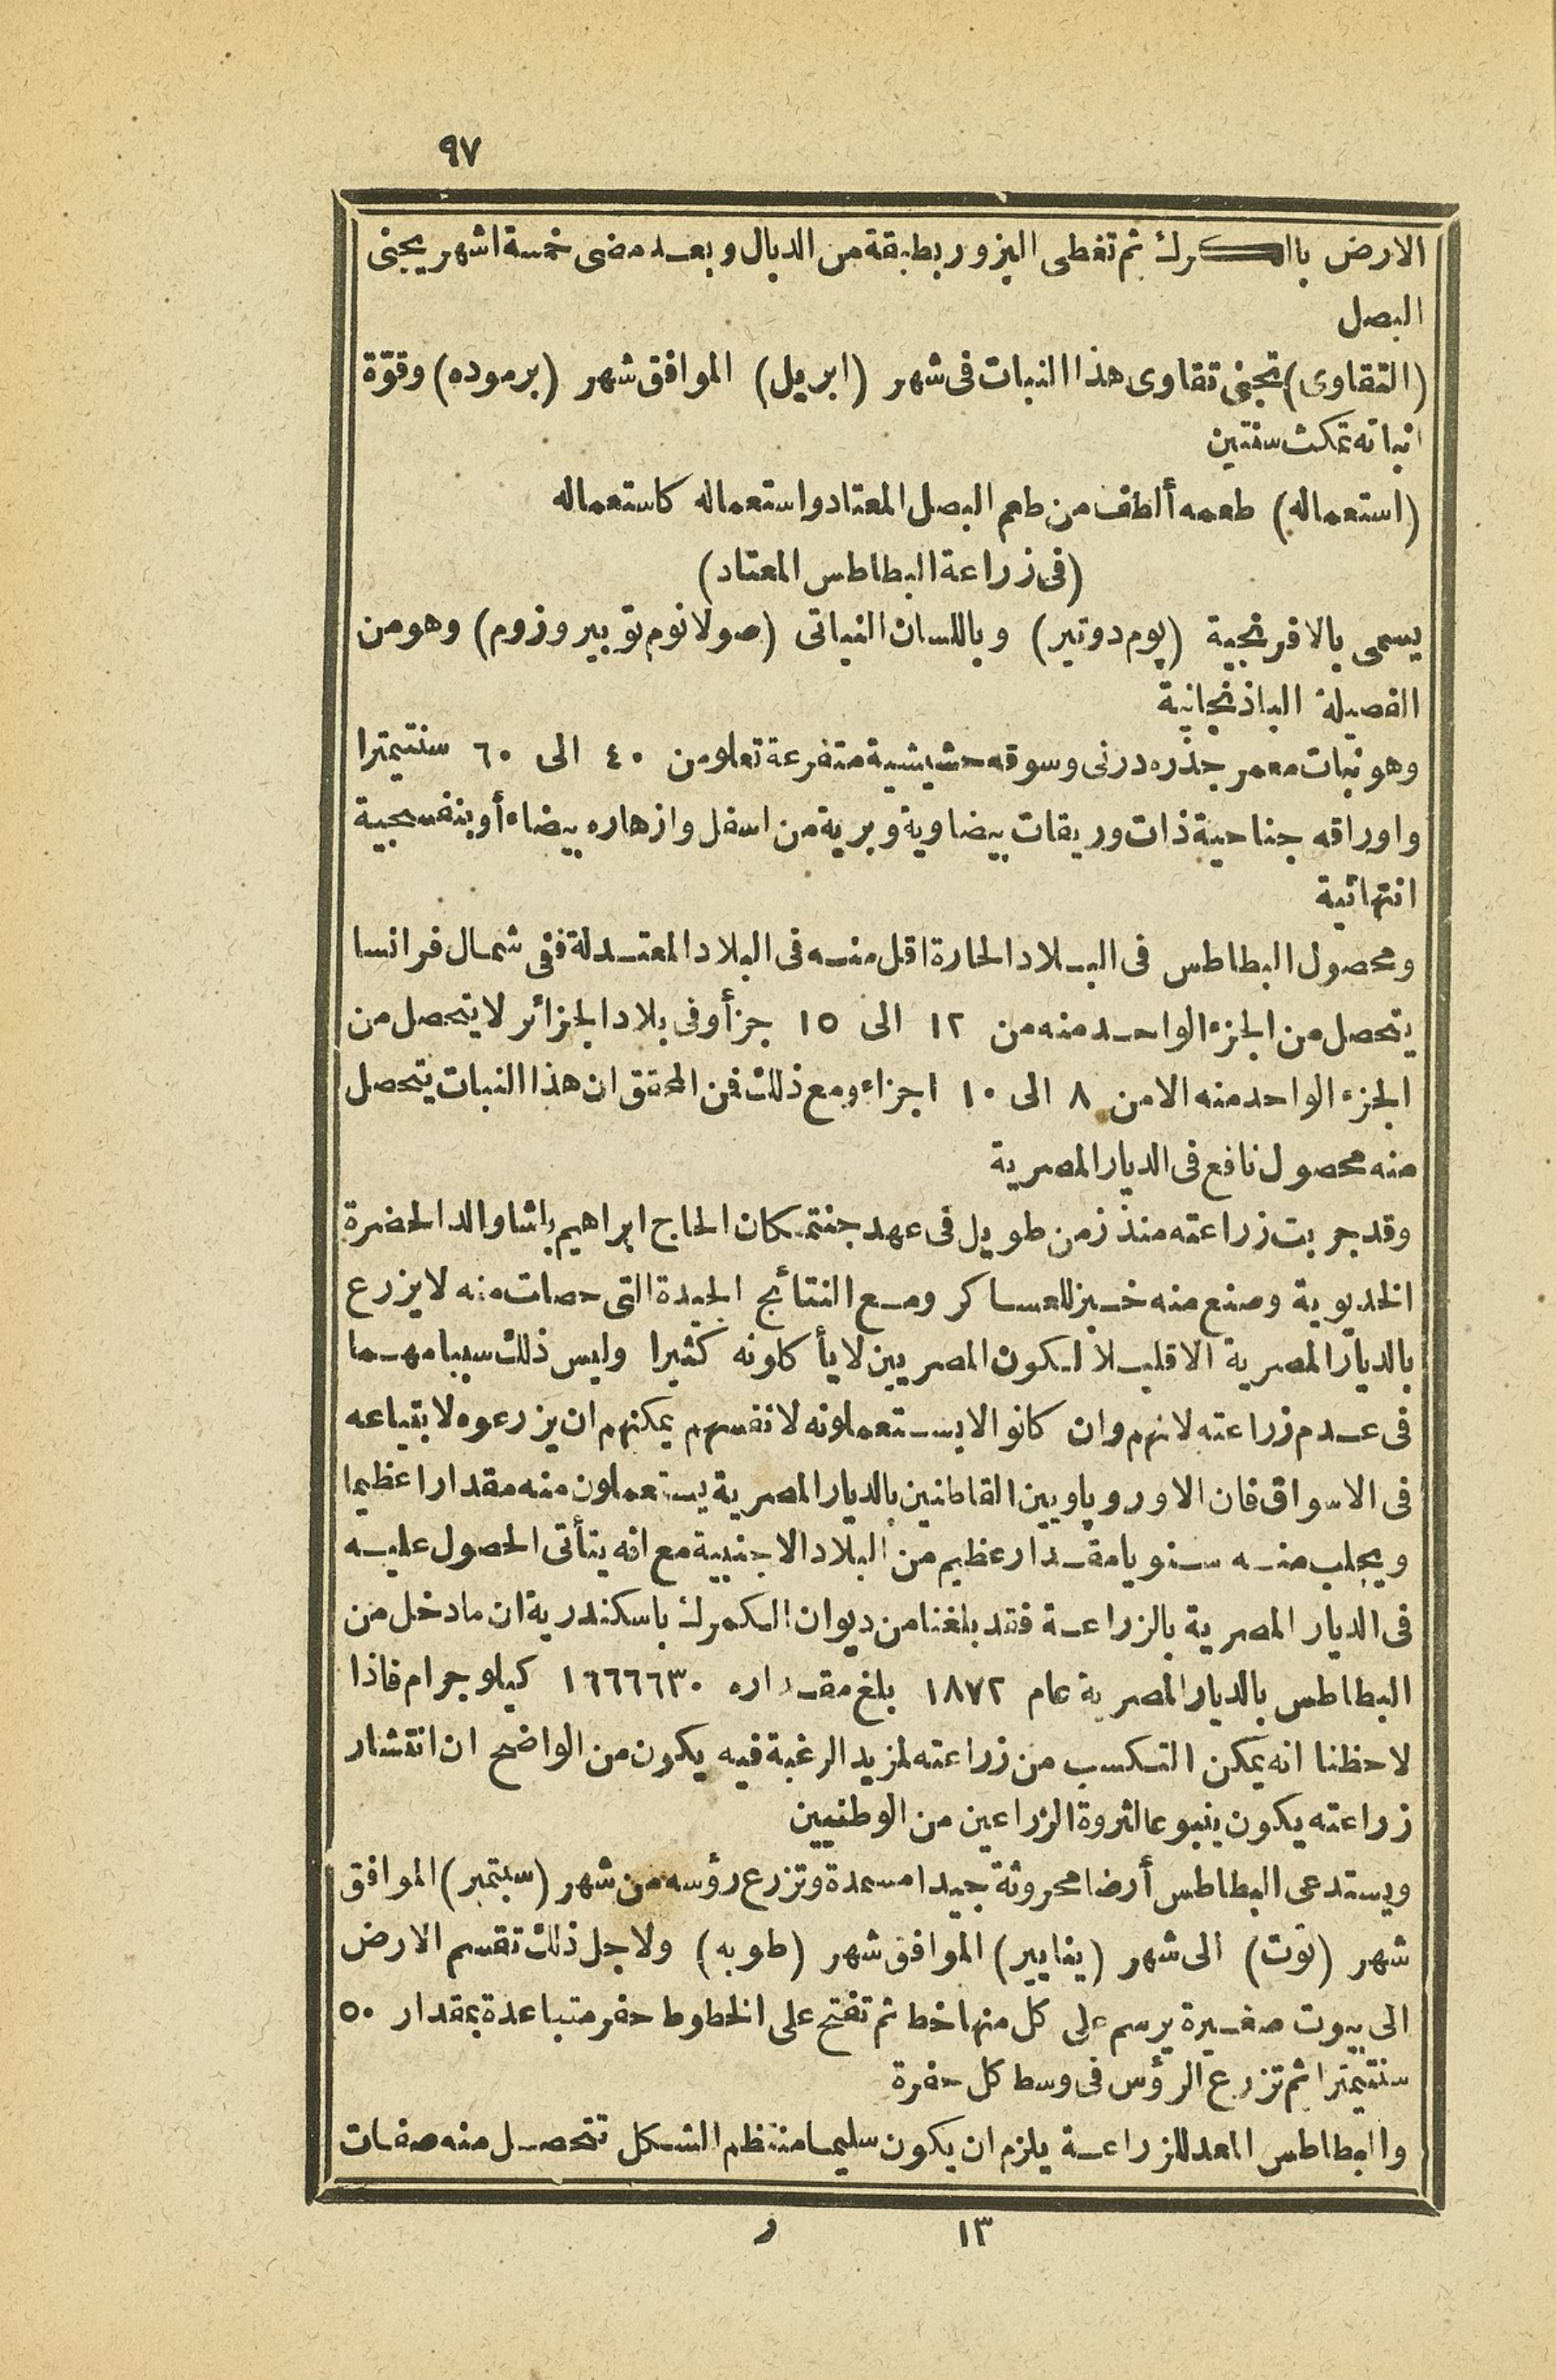 ٩٧
الارض بالكرك ثم تغطى البزور بطبقة من الدبال وبعد مضى خمسة اشهر يجنى
البصل
(التقاوى) تجنى تقاوى هذا النبات فى شهر (ابريل) الموافق شهر (برموده) وقوّة
انباته تمكث سنتين
(استعماله) طعمه ألطف من طعم البصل المعتاد واستعماله كاستعماله
(فى زراعة البطاطس المعتاد)
يسمى بالافرنجية (پوم دوتير) وباللسان النباتى (صولانوم توبيروزوم) وهو من
الفصيلة الباذنجانية
وهو نبات معمر جذره درنى وسوقه حشيشية متفرعة تعلو من ٤٠ الى ٦٠ سنتيمترا
واوراقه جناحية ذات وريقات بيضاوية وبرية من اسفل وازهاره بيضاء أو بنفسجية
انتهائية
ومحصول البطاطس فى البلاد الحارة اقل منه فى البلاد المعتدلة ففى شمال فرانسا
يتحصل من الجزء الواحد منه من ١٢ الى ١٥ جزأ وفى بلاد الجزائر لا يتحصل من
الجزء الواحد منه الا من ٨ الى ١٠ اجزاء ومع ذلك فمن المحقق ان هذا النبات يتحصل
منه محصول نافع فى الديار المصرية
وقد جربت زراعته منذ زمن طويل فى عهد جنتمكان الحاج ابراهيم باشا والد الحضرة
الخديوية وصنع منه خبز للعساكر ومع النتائج الجيدة التى حصلت منه لا يزرع
بالديار المصرية الا قليلا لكون المصريين لا يأكلونه كثيرا وليس ذلك سببا مهما
فى عدم زراعته لانهم وان كانوا لا يستعملونه لانفسهم يمكنهم ان يزرعوه لابتياعه
فى الاسواق فان الاوروپاويين القاطنين بالديار المصرية يستعملون منه مقدارا عظيما
ويجلب منه سنويا مقدار عظيم من البلاد الاجنبية مع انه يتأتى الحصول عليه
فى الديار المصرية بالزراعة فقد بلغنا من ديوان الكمرك باسكندرية ان ما دخل من
البطاطس بالديار المصرية عام ١٨٧٢ بلغ مقداره ١٦٦٦٦٣٠ كيلوجرام فاذا
لاحظنا انه يمكن التكسب من زراعته لمزيد الرغبة فيه يكون من الواضح ان انتشار
زراعته يكون ينبوعا لثروة الزراعين من الوطنيين
ويستدعى البطاطس أرضا محروثة جيدا مسمدة وتزرع رؤسه من شهر (سبتمبر) الموافق
شهر (توت) الى شهر (ينايير) الموافق شهر (طوبه) ولاجل ذلك تقسم الارض
الى بيوت صغيرة يرسم على كل منها خط ثم تفتح على الخطوط حفر متباعدة بمقدار ٥٠
سنتيمترا ثم تزرع الرؤس فى وسط كل حفرة
والبطاطس المعد للزراعة يلزم ان يكون سليما منتظم الشكل تتحصل منه صفات
١٣ ر